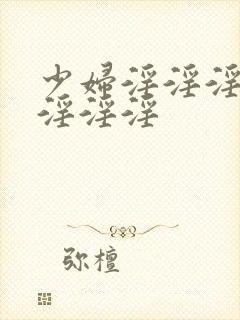 少婦淫淫淫
淫淫淫
弥檀